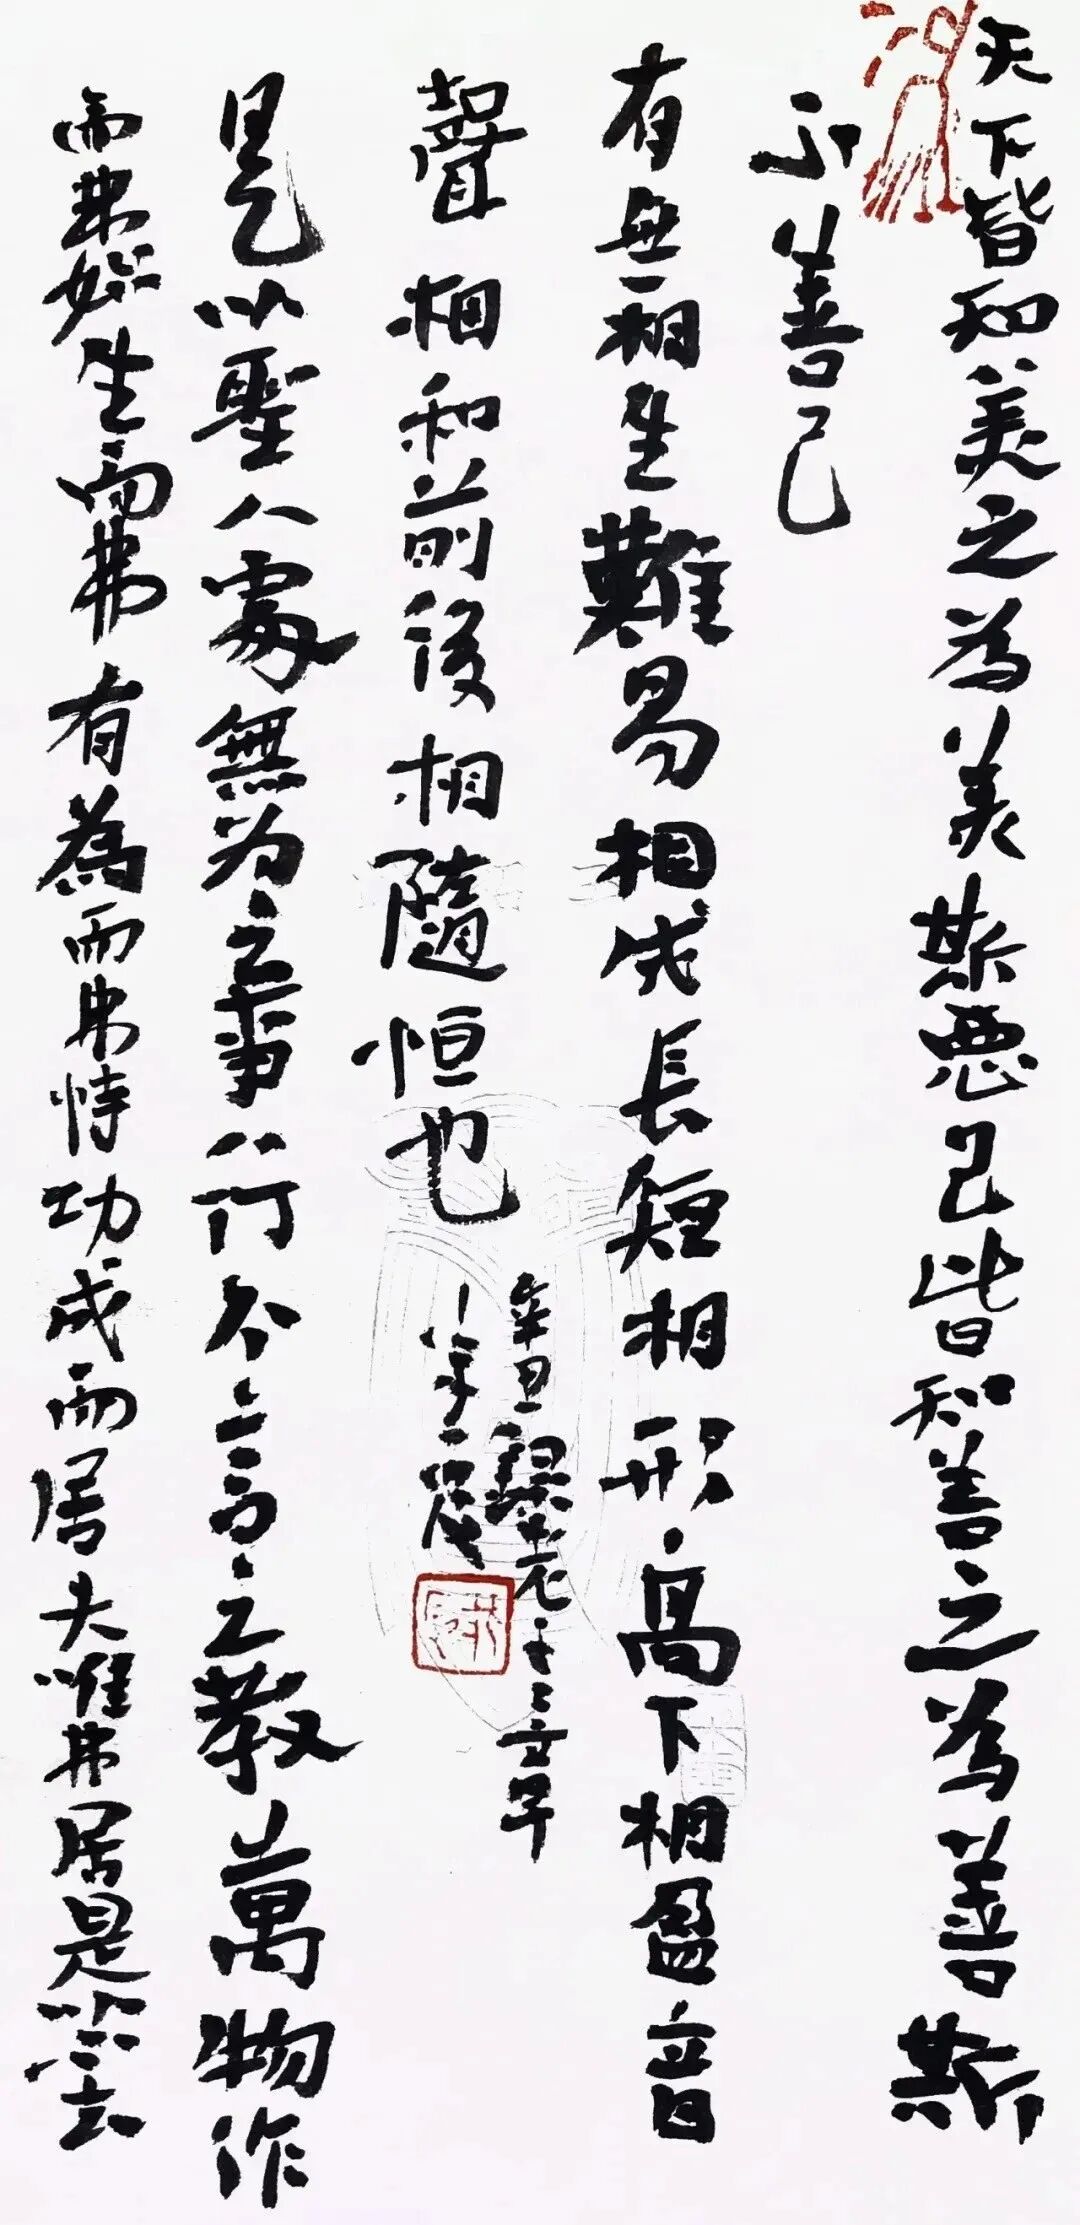 天下皆知美之為美斯惡已皆知善之為善斯
不善已
有無相生難易相成長短相形高下相盈音
聲相和前後相隨恒也
辛丑
是以聖人處無为之事行不言之教萬物作
而弗始生而弗有為而弗恃功成而居夫唯弗居是以不去